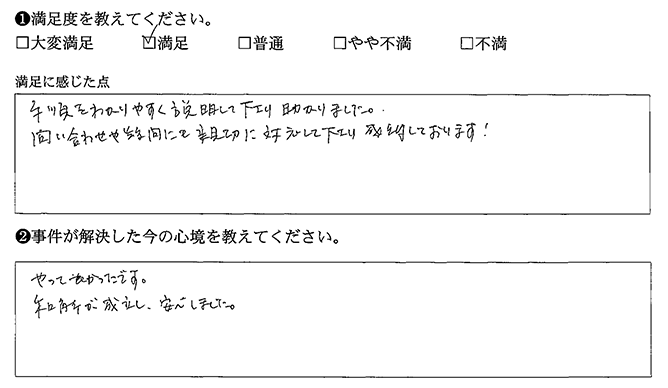 ❶満足度を教えてください。
□大変満足 ☑満足 □普通 □やや不満 □不満
満足に感じた点
手順をわかりやすく説明して下さり助かりました。
問い合わせや質問にも親切に対応して下さり感謝しております!
❷事件が解決した今の心境を教えてください。
やって良かったです。
和解が成立し、安心しました。